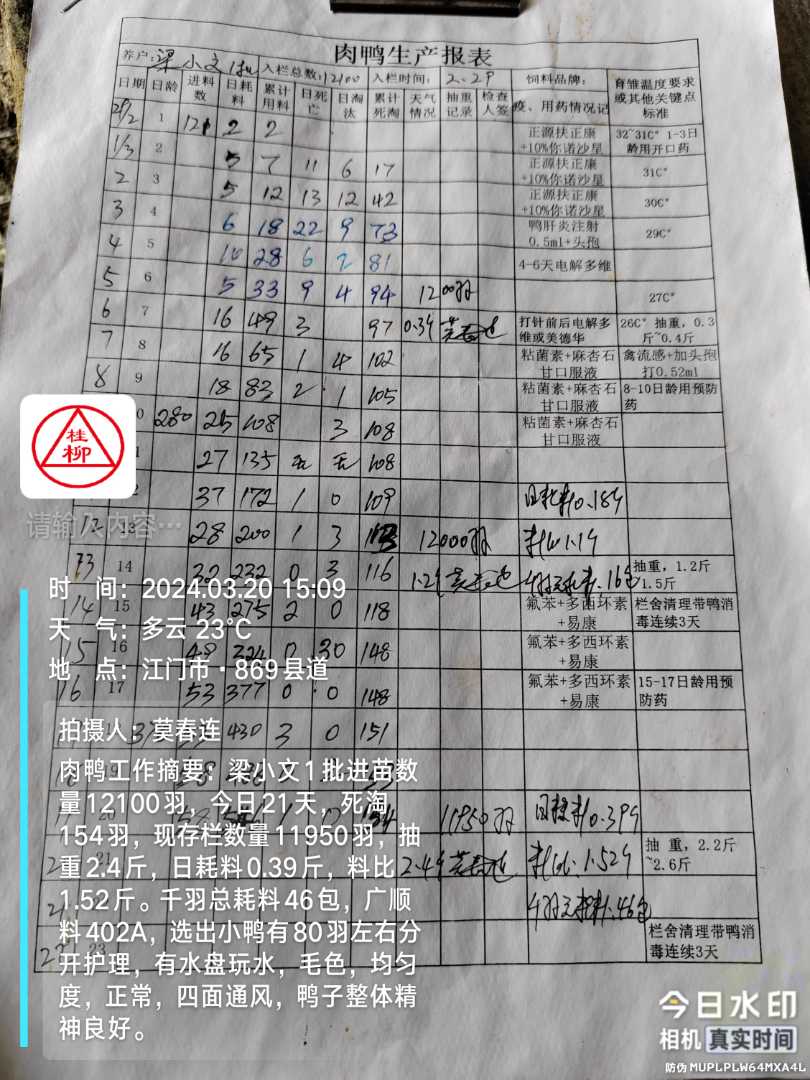 肉鸭生产报表
养户: 梁小文1批 入栏总数: 12100 入栏时间: 2.29 饲料品牌: 育雏温度要求或其他关键点标准
日期 日龄 进料数 日耗料 累计用料 日死亡 日淘汰 累计死淘 天气情况 抽重记录 检查人签 疫、用药情况记
29/2 1 121 2 2 正源扶正康+10%你诺沙星 32~31C° 1-3日龄用开口药
1/3 2 5 7 11 6 17 正源扶正康+10%你诺沙星 31C°
2 3 5 12 13 12 42 正源扶正康+10%你诺沙星 30C°
3 4 6 18 22 9 73 鸭肝炎注射0.5ml+头孢 29C°
4 5 10 28 6 2 81 4-6天电解多维
5 6 5 33 9 4 94 1200羽 27C°
6 7 16 49 3 97 0.39 莫春连 打针前后电解多维或美德华 26C° 抽重,0.3斤~0.4斤
7 8 16 65 1 4 102 粘菌素+麻杏石甘口服液 禽流感+加头孢打0.52ml
8 9 18 83 2 1 105 粘菌素+麻杏石甘口服液 8-10日龄用预防药
280 25 108 3 108 粘菌素+麻杏石甘口服液
27 135 无 无 108
37 172 1 0 109 日耗料0.189
12 28 200 1 3 113 12000羽 料比1.19
13 14 32 232 0 3 116 1.29 莫春连 抽重,1.2斤1.5斤
14 15 43 275 2 0 118 氟苯+多西环素+易康 栏舍清理带鸭消毒连续3天
15 16 49 324 0 30 148 氟苯+多西环素+易康
16 17 53 377 0 0 148 氟苯+多西环素+易康 15-17日龄用预防药
430 3 0 151
20 154 11950羽 日耗料0.399
21 2.49 莫春连 料比:1.529 抽重,2.2斤~2.6斤
23 栏舍清理带鸭消毒连续3天
桂柳
请输入内容…
时 间:2024.03.20 15:09
天 气:多云 23℃
地 点:江门市·869县道
拍摄人:莫春连
肉鸭工作摘要:梁小文1批进苗数
量12100羽,今日21天,死淘
154羽,现存栏数量11950羽,抽
重2.4斤,日耗料0.39斤,料比
1.52斤。千羽总耗料46包,广顺
料402A,选出小鸭有80羽左右分
开护理,有水盘玩水,毛色,均匀
度,正常,四面通风,鸭子整体精
神良好。
今日水印
相机 真实时间
防伪 MUPLPLW64MXA4L